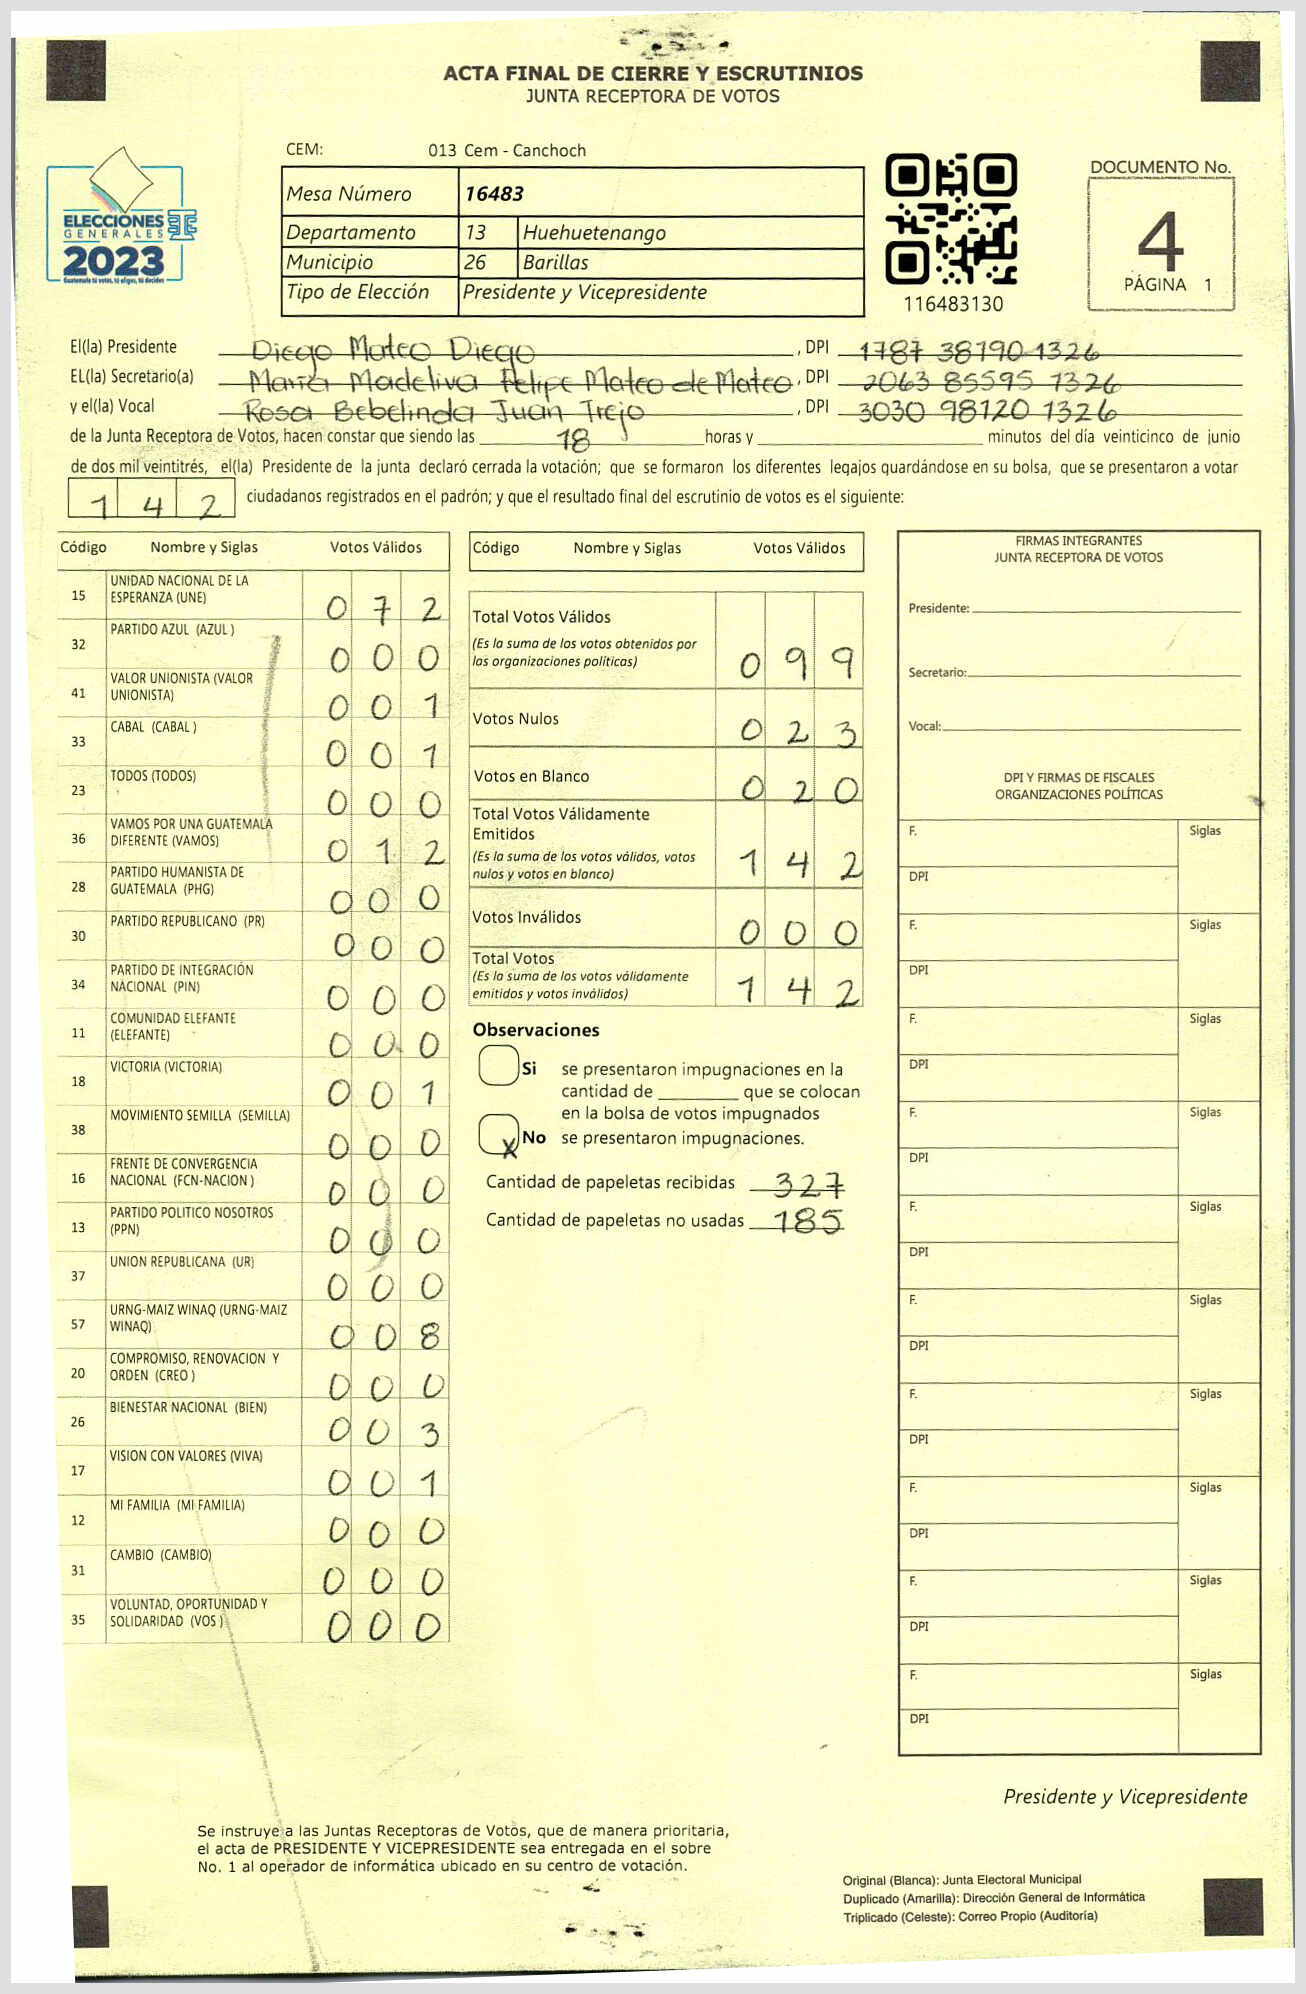 ACTA FINAL DE CIERRE Y ESCRUTINIOS
JUNTA RECEPTORA DE VOTOS
CEM: 013 Cem - Canchoch
ELECCIONES
GENERALES
2023
Guatemala tú votas, tú eliges, tú decides
Mesa Número 16483
Departamento 13 Huehuetenango
Municipio 26 Barillas
Tipo de Elección Presidente y Vicepresidente
116483130
DOCUMENTO No.
4
PÁGINA 1
El(la) Presidente Diego Mateo Diego, DPI 1787 38190 1326
EL(la) Secretario(a) María Madeliva Felipe Mateo de Mateo, DPI 2063 85595 1326
y el(la) Vocal Rosa Bebelinda Juan Trejo, DPI 3030 98120 1326
de la Junta Receptora de Votos, hacen constar que siendo las 18 horas y ____ minutos del día veinticinco de junio
de dos mil veintitrés, el(la) Presidente de la junta declaró cerrada la votación; que se formaron los diferentes legajos quardándose en su bolsa, que se presentaron a votar
142 ciudadanos registrados en el padrón; y que el resultado final del escrutinio de votos es el siguiente:
Código Nombre y Siglas Votos Válidos
15 UNIDAD NACIONAL DE LA ESPERANZA (UNE) 072
32 PARTIDO AZUL (AZUL ) 000
41 VALOR UNIONISTA (VALOR UNIONISTA) 001
33 CABAL (CABAL ) 001
23 TODOS (TODOS) 000
36 VAMOS POR UNA GUATEMALA DIFERENTE (VAMOS) 012
28 PARTIDO HUMANISTA DE GUATEMALA (PHG) 000
30 PARTIDO REPUBLICANO (PR) 000
34 PARTIDO DE INTEGRACIÓN NACIONAL (PIN) 000
11 COMUNIDAD ELEFANTE (ELEFANTE) 000
18 VICTORIA (VICTORIA) 001
38 MOVIMIENTO SEMILLA (SEMILLA) 000
16 FRENTE DE CONVERGENCIA NACIONAL (FCN-NACION ) 000
13 PARTIDO POLITICO NOSOTROS (PPN) 000
37 UNION REPUBLICANA (UR) 000
57 URNG-MAIZ WINAQ (URNG-MAIZ WINAQ) 008
20 COMPROMISO, RENOVACION Y ORDEN (CREO ) 000
26 BIENESTAR NACIONAL (BIEN) 003
17 VISION CON VALORES (VIVA) 001
12 MI FAMILIA (MI FAMILIA) 000
31 CAMBIO (CAMBIO) 000
35 VOLUNTAD, OPORTUNIDAD Y SOLIDARIDAD (VOS ) 000
Código Nombre y Siglas Votos Válidos
Total Votos Válidos
(Es la suma de los votos obtenidos por
las organizaciones políticas) 099
Votos Nulos 023
Votos en Blanco 020
Total Votos Válidamente
Emitidos
(Es la suma de los votos válidos, votos
nulos y votos en blanco) 142
Votos Inválidos 000
Total Votos
(Es la suma de los votos válidamente
emitidos y votos inválidos) 142
Observaciones
Si se presentaron impugnaciones en la
cantidad de ____ que se colocan
en la bolsa de votos impugnados
X No se presentaron impugnaciones.
Cantidad de papeletas recibidas 327
Cantidad de papeletas no usadas 185
FIRMAS INTEGRANTES
JUNTA RECEPTORA DE VOTOS
Presidente:
Secretario:
Vocal:
DPI Y FIRMAS DE FISCALES
ORGANIZACIONES POLÍTICAS
F. Siglas
DPI
F. Siglas
DPI
F. Siglas
DPI
F. Siglas
DPI
F. Siglas
DPI
F. Siglas
DPI
F. Siglas
DPI
F. Siglas
DPI
F. Siglas
DPI
F. Siglas
DPI
Presidente y Vicepresidente
Se instruye a las Juntas Receptoras de Votos, que de manera prioritaria,
el acta de PRESIDENTE Y VICEPRESIDENTE sea entregada en el sobre
No. 1 al operador de informática ubicado en su centro de votación.
Original (Blanca): Junta Electoral Municipal
Duplicado (Amarilla): Dirección General de Informática
Triplicado (Celeste): Correo Propio (Auditoría)